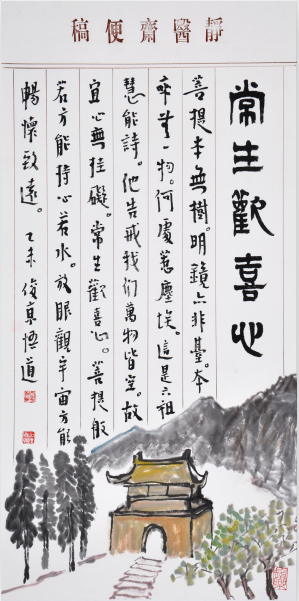 靜醫齋便稿
常生歡喜心
菩提本無樹。明鏡亦非臺。本
來無一物。何處惹塵埃。這是六祖
慧能詩。他告戒我们萬物皆空。故
宜心無挂礙。常生歡喜心。菩提般
若方能持心若水。放眼觀宇宙方能
暢懷致遠。乙未 俊京悟道